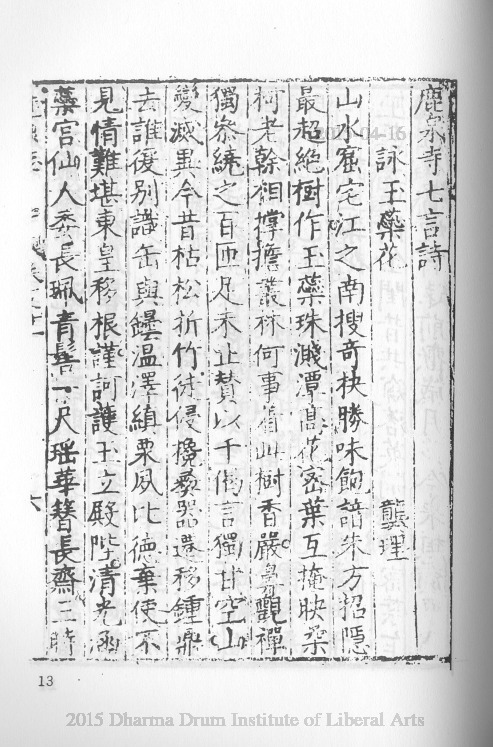 鹿泉寺七言詩
詠玉蘂花 龔理
山水窟宅江之南搜奇抉勝味飽諳朱方招隱
最超絕樹作玉蘂珠濺潭高花密葉互掩映柔
柯老榦相撑擔叢林何事有此樹香嚴鼻觀禪
獨叅繞之百匝足未止贊以千偈言獨甘空山
變滅異今昔枯松折竹徒侵器還移鍾鼎
去誰復別識缶與罍温澤縝栗夙比德棄使不
見情難堪東皇移根謹訶護玉立殿陛清光涵
蘂宮仙人委長珮青髻一尺瑶華簪長齋三時
13
2015 Dharma Drum Institute of Liberal Arts